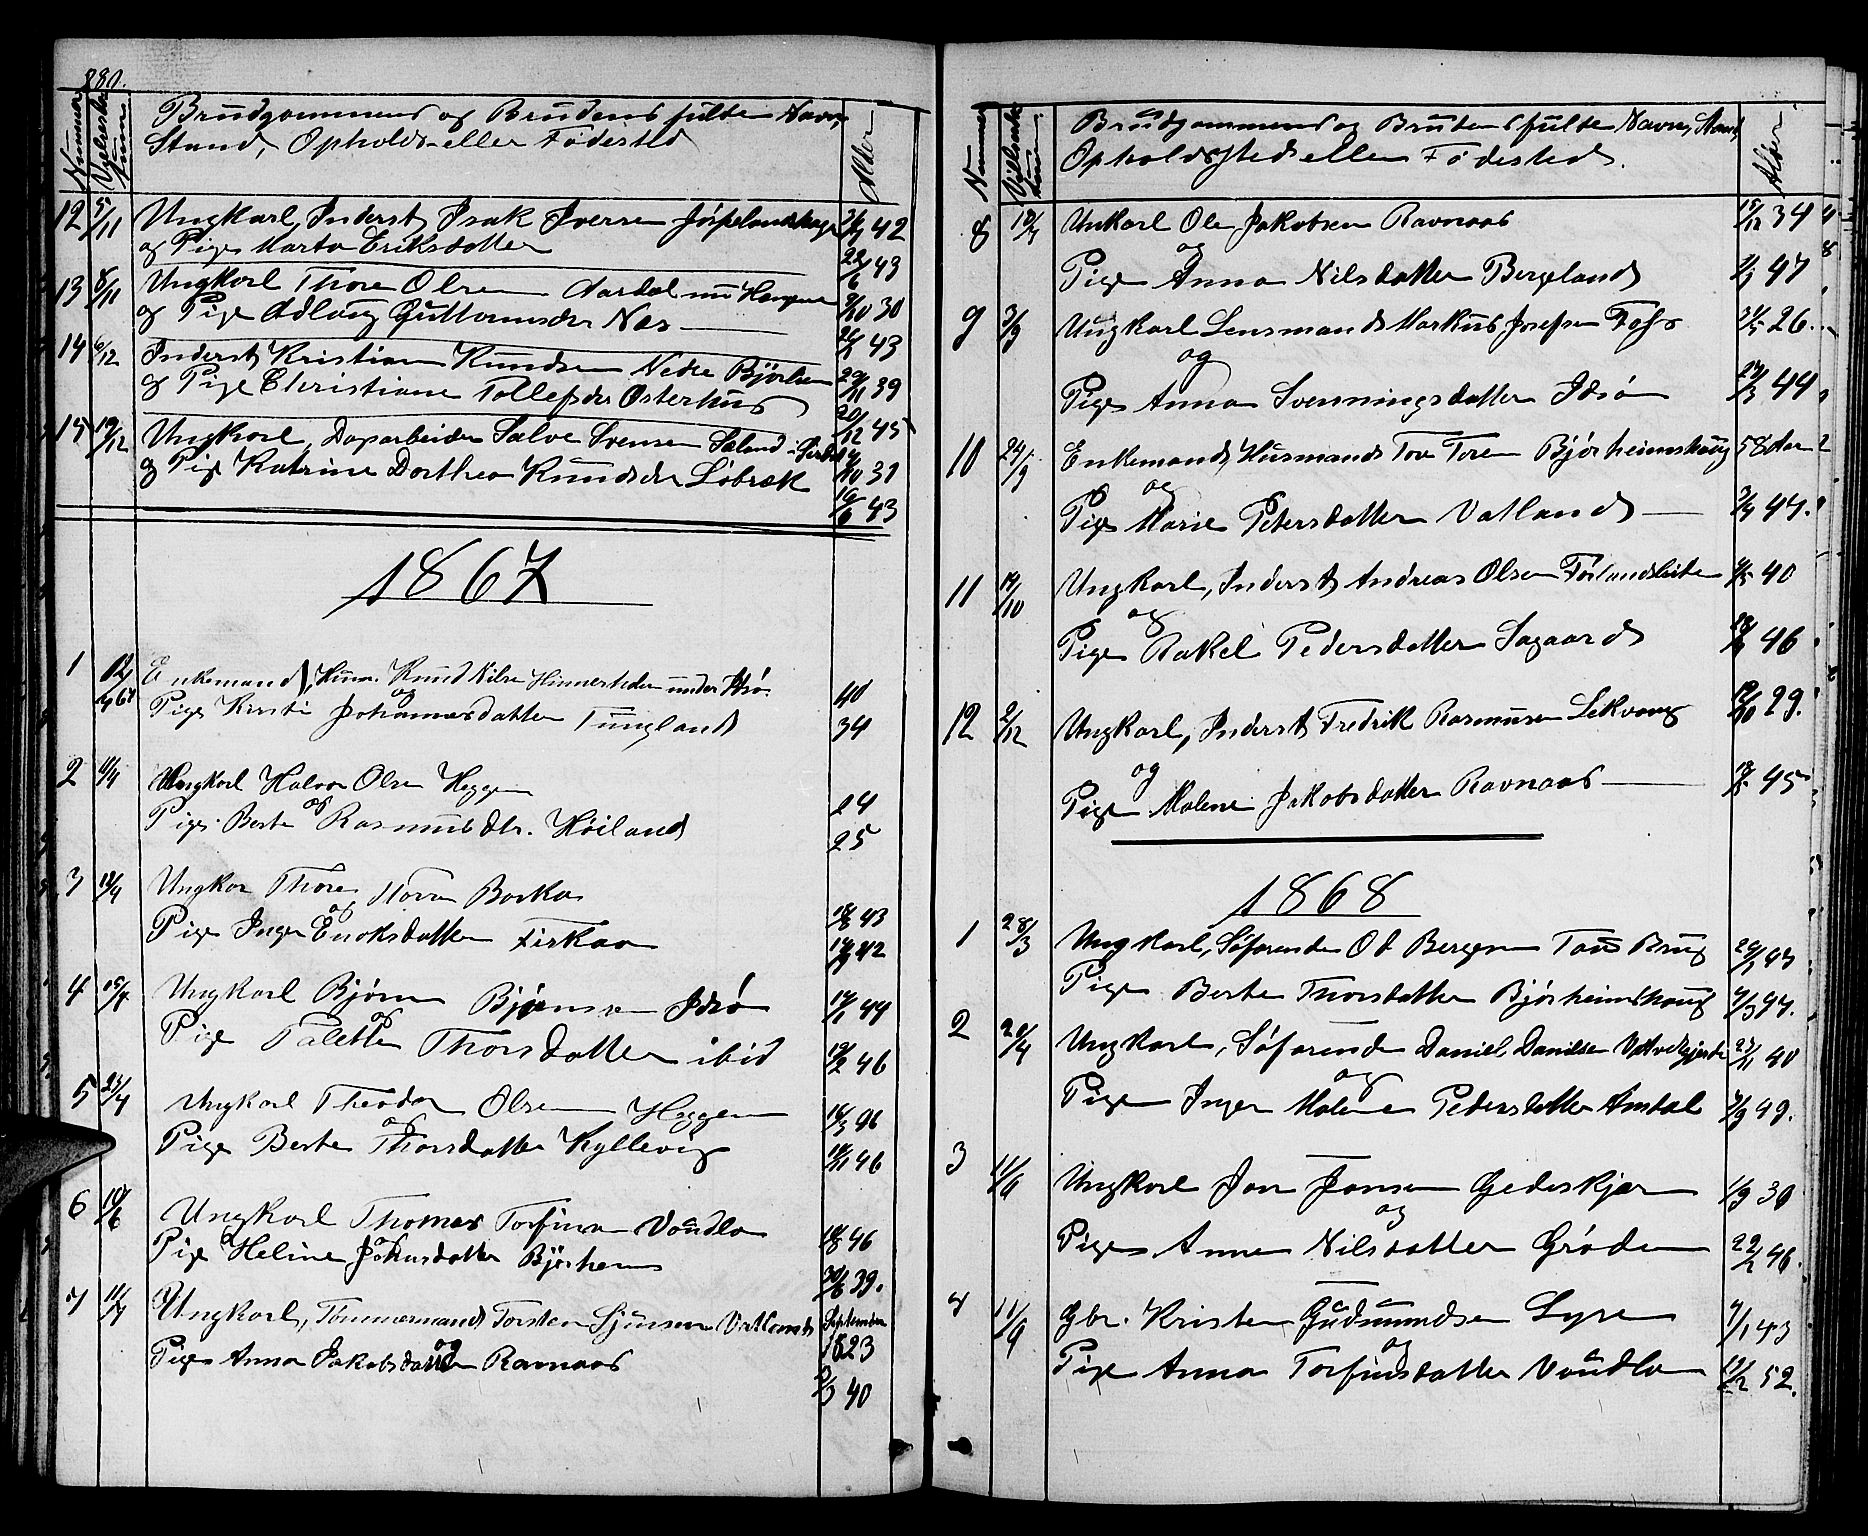 Nummer
Vielsesdatum
Brudgommens og Brudens fulde Navn,
Stand, Opholds eller Fødested
Alder
12 5/11 Ungkarl, Inderst Isak Iversen Jørpelandshage 42
og Pige Marta Eriksdatter 22/6 43
13 8/11 Ungkarl Thore Olsen Aardal nu Heggen 9/10 30
og Pige Adlaug Guttormsdtr Nes 43
14 6/12 Inderst Kristian Knudsen Nedre Bjørheim 29/11 39
og Pige Christiane Tollefsdtr Østerhus 20/12 45
15 19/12 Ungkarl, Dagarbeider Salve Svensen Sæland 31
og Pige Katrine Dorthea Knudsdtr Løbræk 16/6 43
1867
1 12/4 67 Enkemand, Husm. Knud Nilsen Hinnersteden under Idsø 40
og
Pige Kirsti Johannesdatter Tungland 34
2 11/4 Ungkarl Halvor Olsen Heggen 24
og
Pige Berte Rasmusdtr. Høiland 25
3 12/4 Ungkar Thore Børka 43
og
Pige Inger Enoksdatter 42
4 15/4 Ungkarl Bjørn Bjørnsen Idsø 44
og
Pige Palette Thorsdatter ibid 12/2 46
5 23/4 Ungkarl Theodor Olsen Heggen 46
og
Pige Berte Thorsdatter Kyllevig 46
6 10/6 Ungkarl Thomas Torfinsen Voudla 46
og
Pige Heline Johnsdatter Bjørheim 30/6 39.
7 11/7 Ungkarl, Tømmermand Torsten Sjursen Vatland September 1823
og
Pige Anna Jakobsdatter Ravnaas 40
Nummer
Vielsesdatum
Brudgommens og Brudens fulde Navn, Stand,
Opholdssted eller Fødested.
Alder
8 Unkarl Ole Jakobsen Ravnaas 15/12 34
og
Pige Anna Nilsdatter Bergeland 47
9 3/9 Ungkarl Lensmand Markus Josefsen Fos 26.
og
Pige Anna Svenningsdatter Idsø 44
10 24/9 Enkemand, Husmand Tore Toresen Bjørheimshoug 58 Aar
og
Pige Marie Petersdatter Vatland 47.
11 14/10 Ungkarl, Inderst Andreas Olsen Førlandsleite 40
og
Pige Rakel Pedersdatter Sagaard 46
12 2/12 Ungkarl, Inderst Fredrik Rasmusen Lekvang 29.
og
Pige Malene Jakobsdatter Ravnaas 45
1868
1 28/3 Ungkarl, Søfarende Od Bergesen Tau Brug 43
Pige Berte Thorsdatter Bjørheimshoug 4/3 47.
2 20/4 Ungkarl, Søfarende Daniel Danielsen 23/11 40
og
Pige Inger Malene Pedersdatter Amdal 3/9 49.
3 11/6 Ungkarl Jon Jonsen Gedeskjær 1/9 30
og
Pige Anne Nilsdatter Grøden 22/2 46.
4 11/9 Gbr. Kristen Gudmundsen Lyse 7/1 43
og
Pige Anna Torfinsdatter Voudla 52.